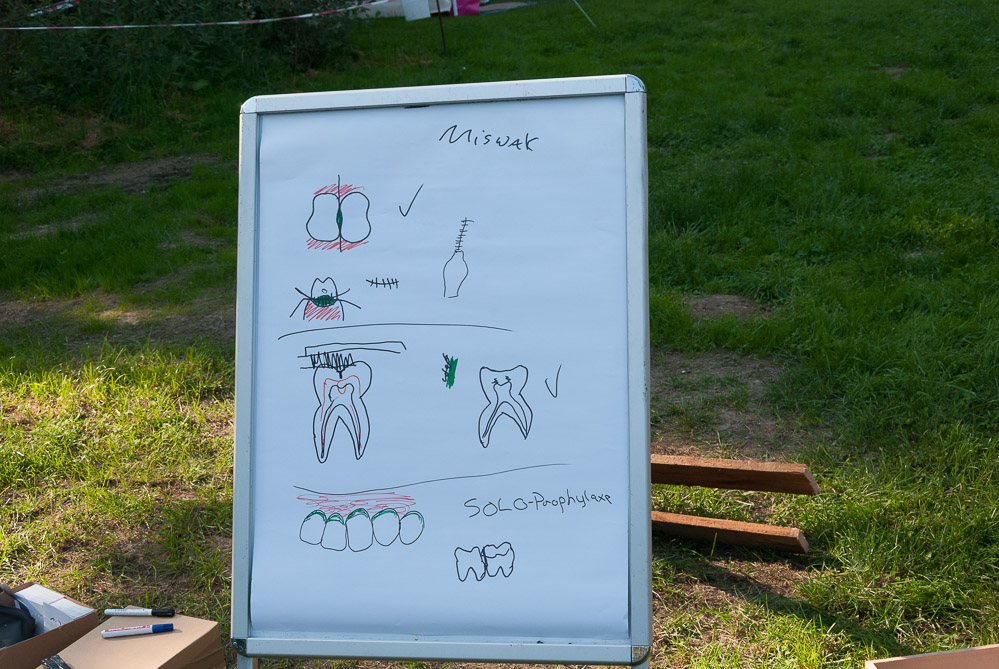 Miswak
SOLO-Prophylaxe